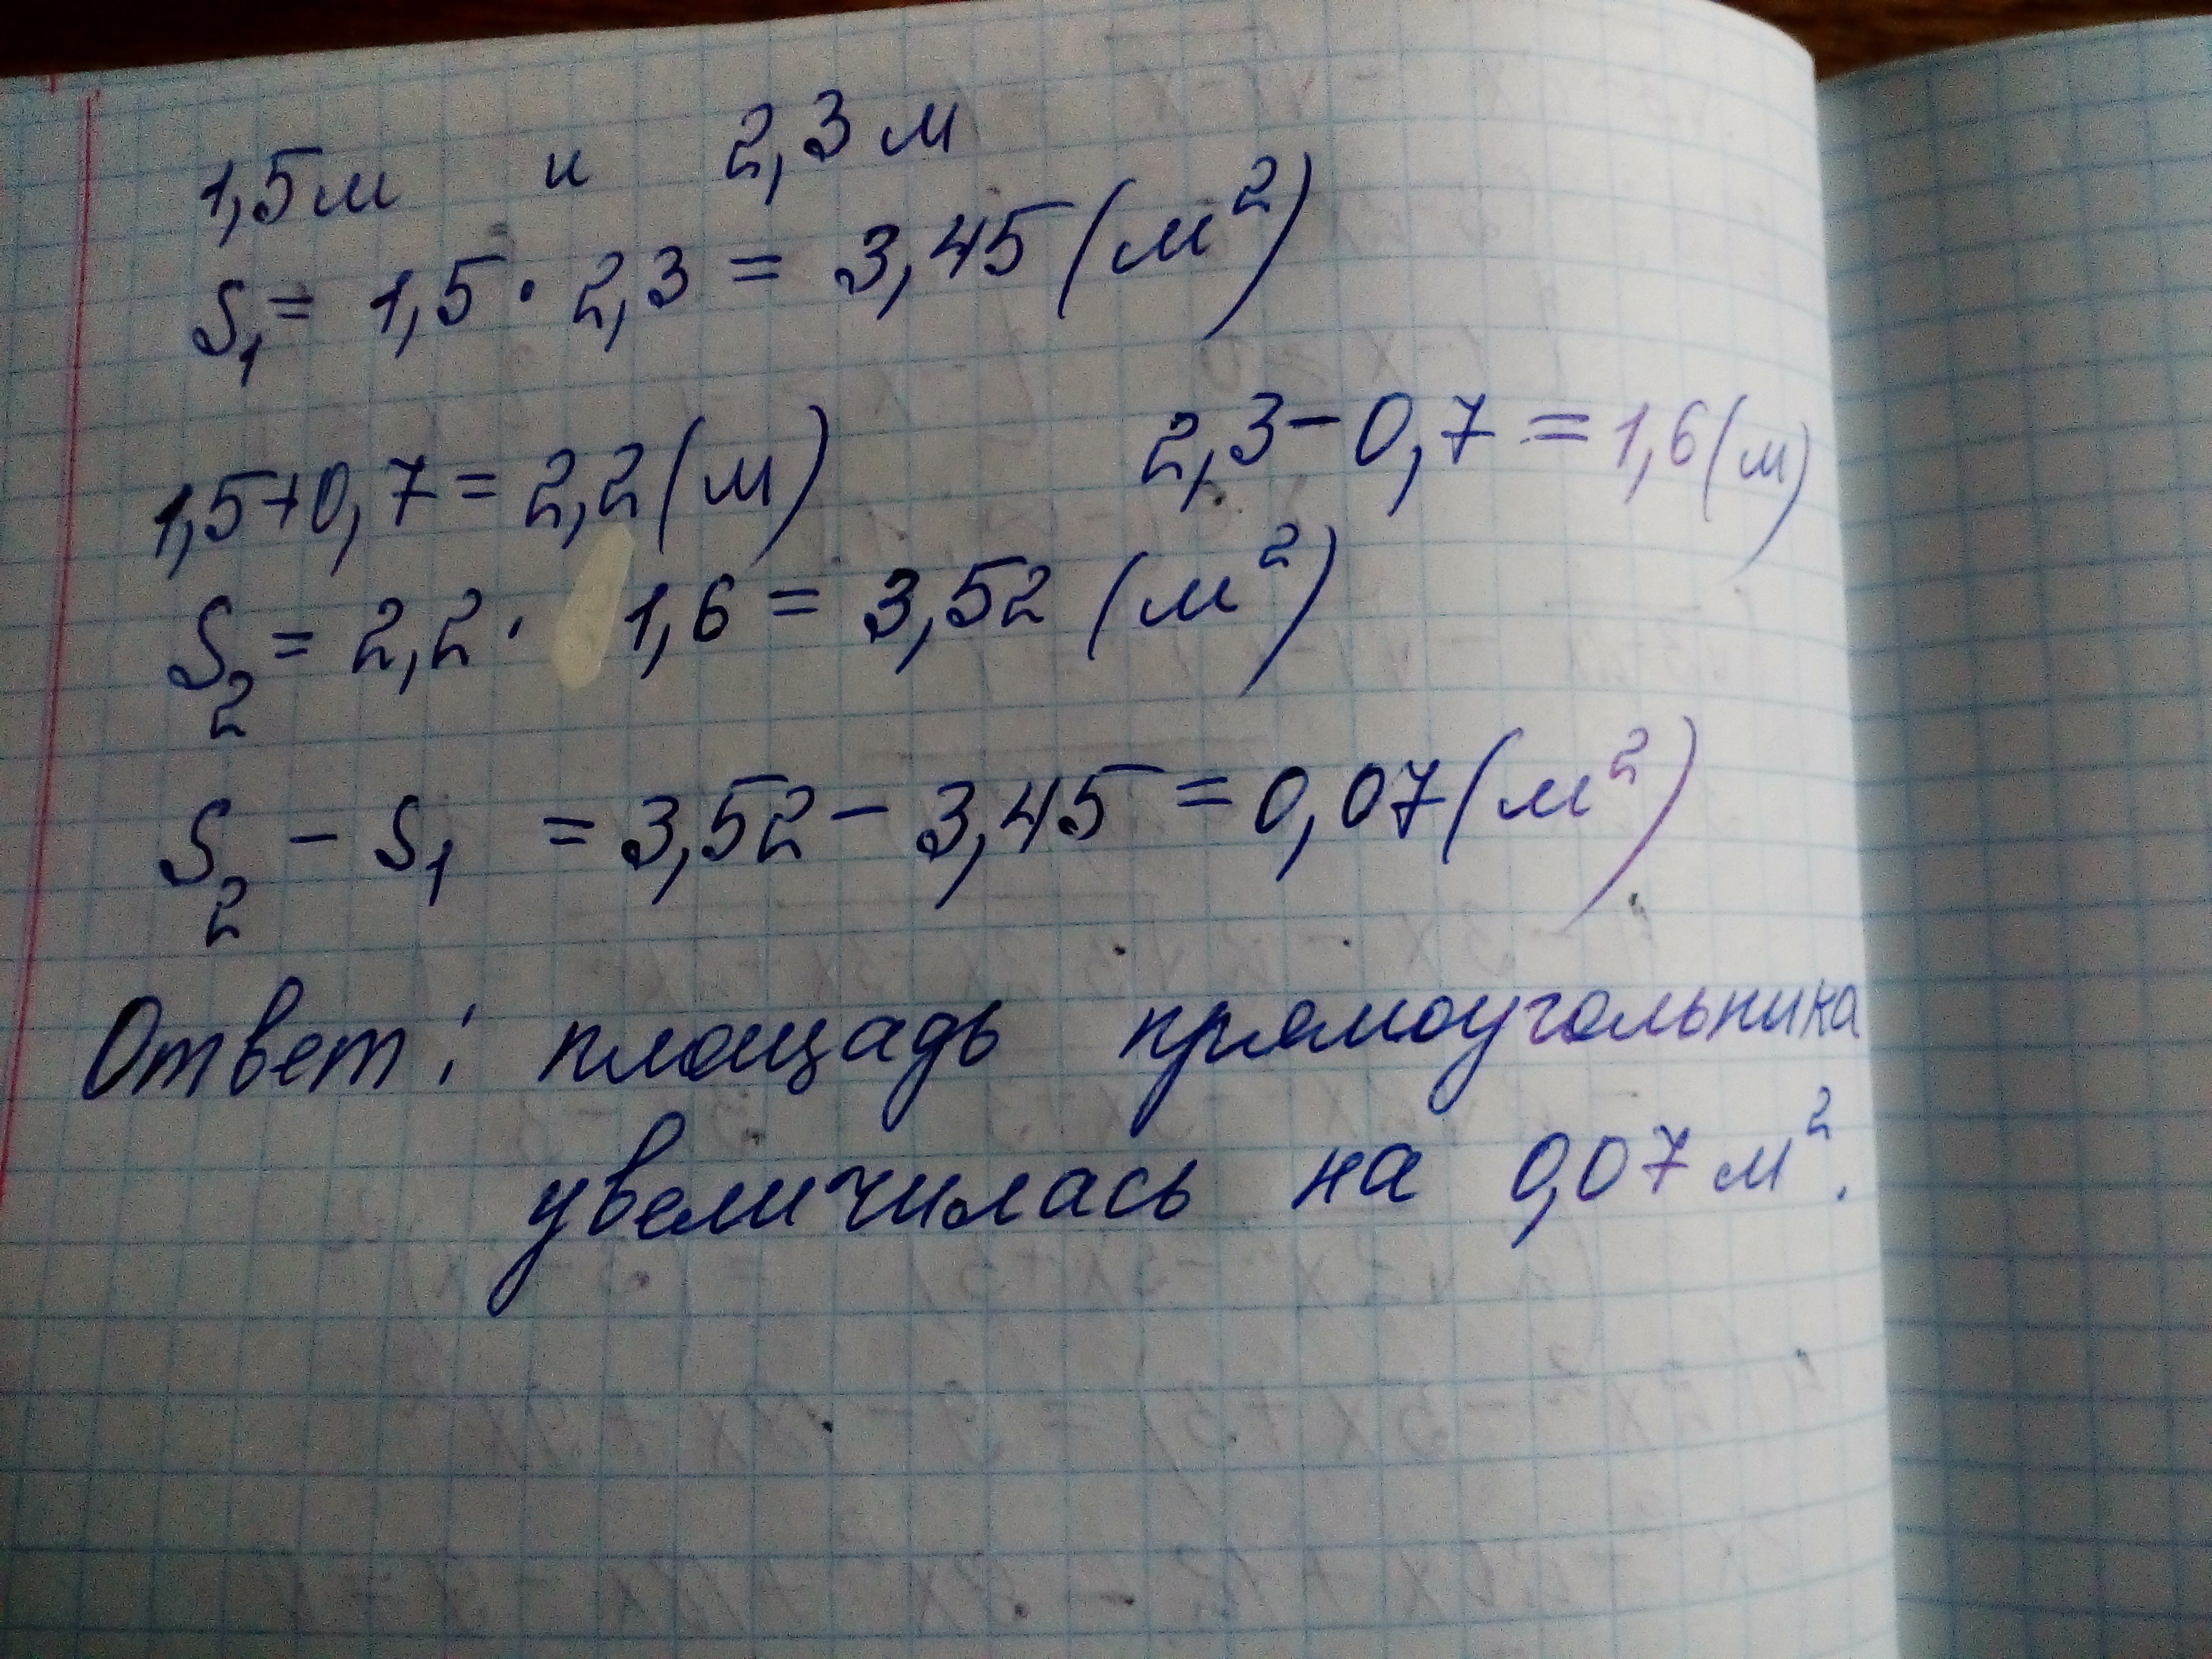 1,5м и 2,3м
S₁= 1,5·2,3 = 3,45 (м²)
1,5+0,7=2,2(м) 2,3-0,7=1,6(м)
S₂=2,2· 1,6=3,52 (м²)
S₂ - S₁ =3,52-3,45=0,07(м²)
Ответ: площадь прямоугольника
увеличилась на 0,07м².